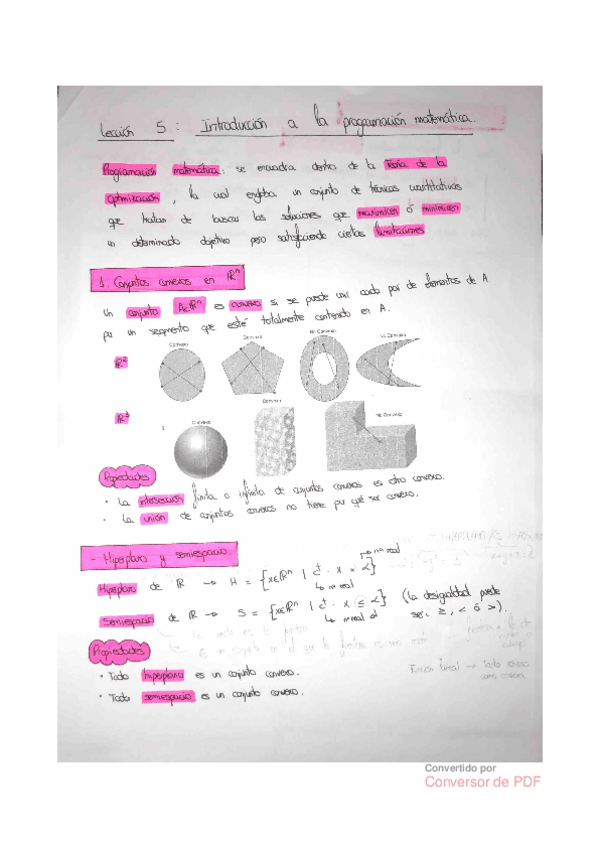 Lección 5: Introducción a la programación matemática.
Programación matemática: se encuadra dentro de la Teoría de la
optimización, la cual engloba un conjunto de técnicas cuantitativas
que tratan de buscar las soluciones que maximicen ó minimicen
un determinado objetivo pero satisfaciendo ciertas limitaciones
1. Conjuntos convexos en ℝⁿ
Un conjunto A⊂ℝⁿ es convexo si se puede unir cada par de elementos de A
por un segmento que esté totalmente contenido en A.
Convexo Convexo No Convexo No Convexo
ℝ²
Convexo
ℝ³ Convexo No Convexo
Propiedades
· La intersección finita o infinita de conjuntos convexos es otro convexo.
· La unión de conjuntos convexos no tiene por qué ser convexo.
- Hiperplano y semiespacio.
Hiperplano de ℝ → H = {x∈ℝⁿ | cᵗ · x = α} → nº real
↳ nº real
Semiespacio de ℝ → S = {x∈ℝⁿ | cᵗ · x ≤ α} (la desigualdad puede
ser: ≥, < ó >).
Propiedades
· Todo hiperplano es un conjunto convexo.
· Todo semiespacio es un conjunto convexo.
Convertido por
Conversor de PDF